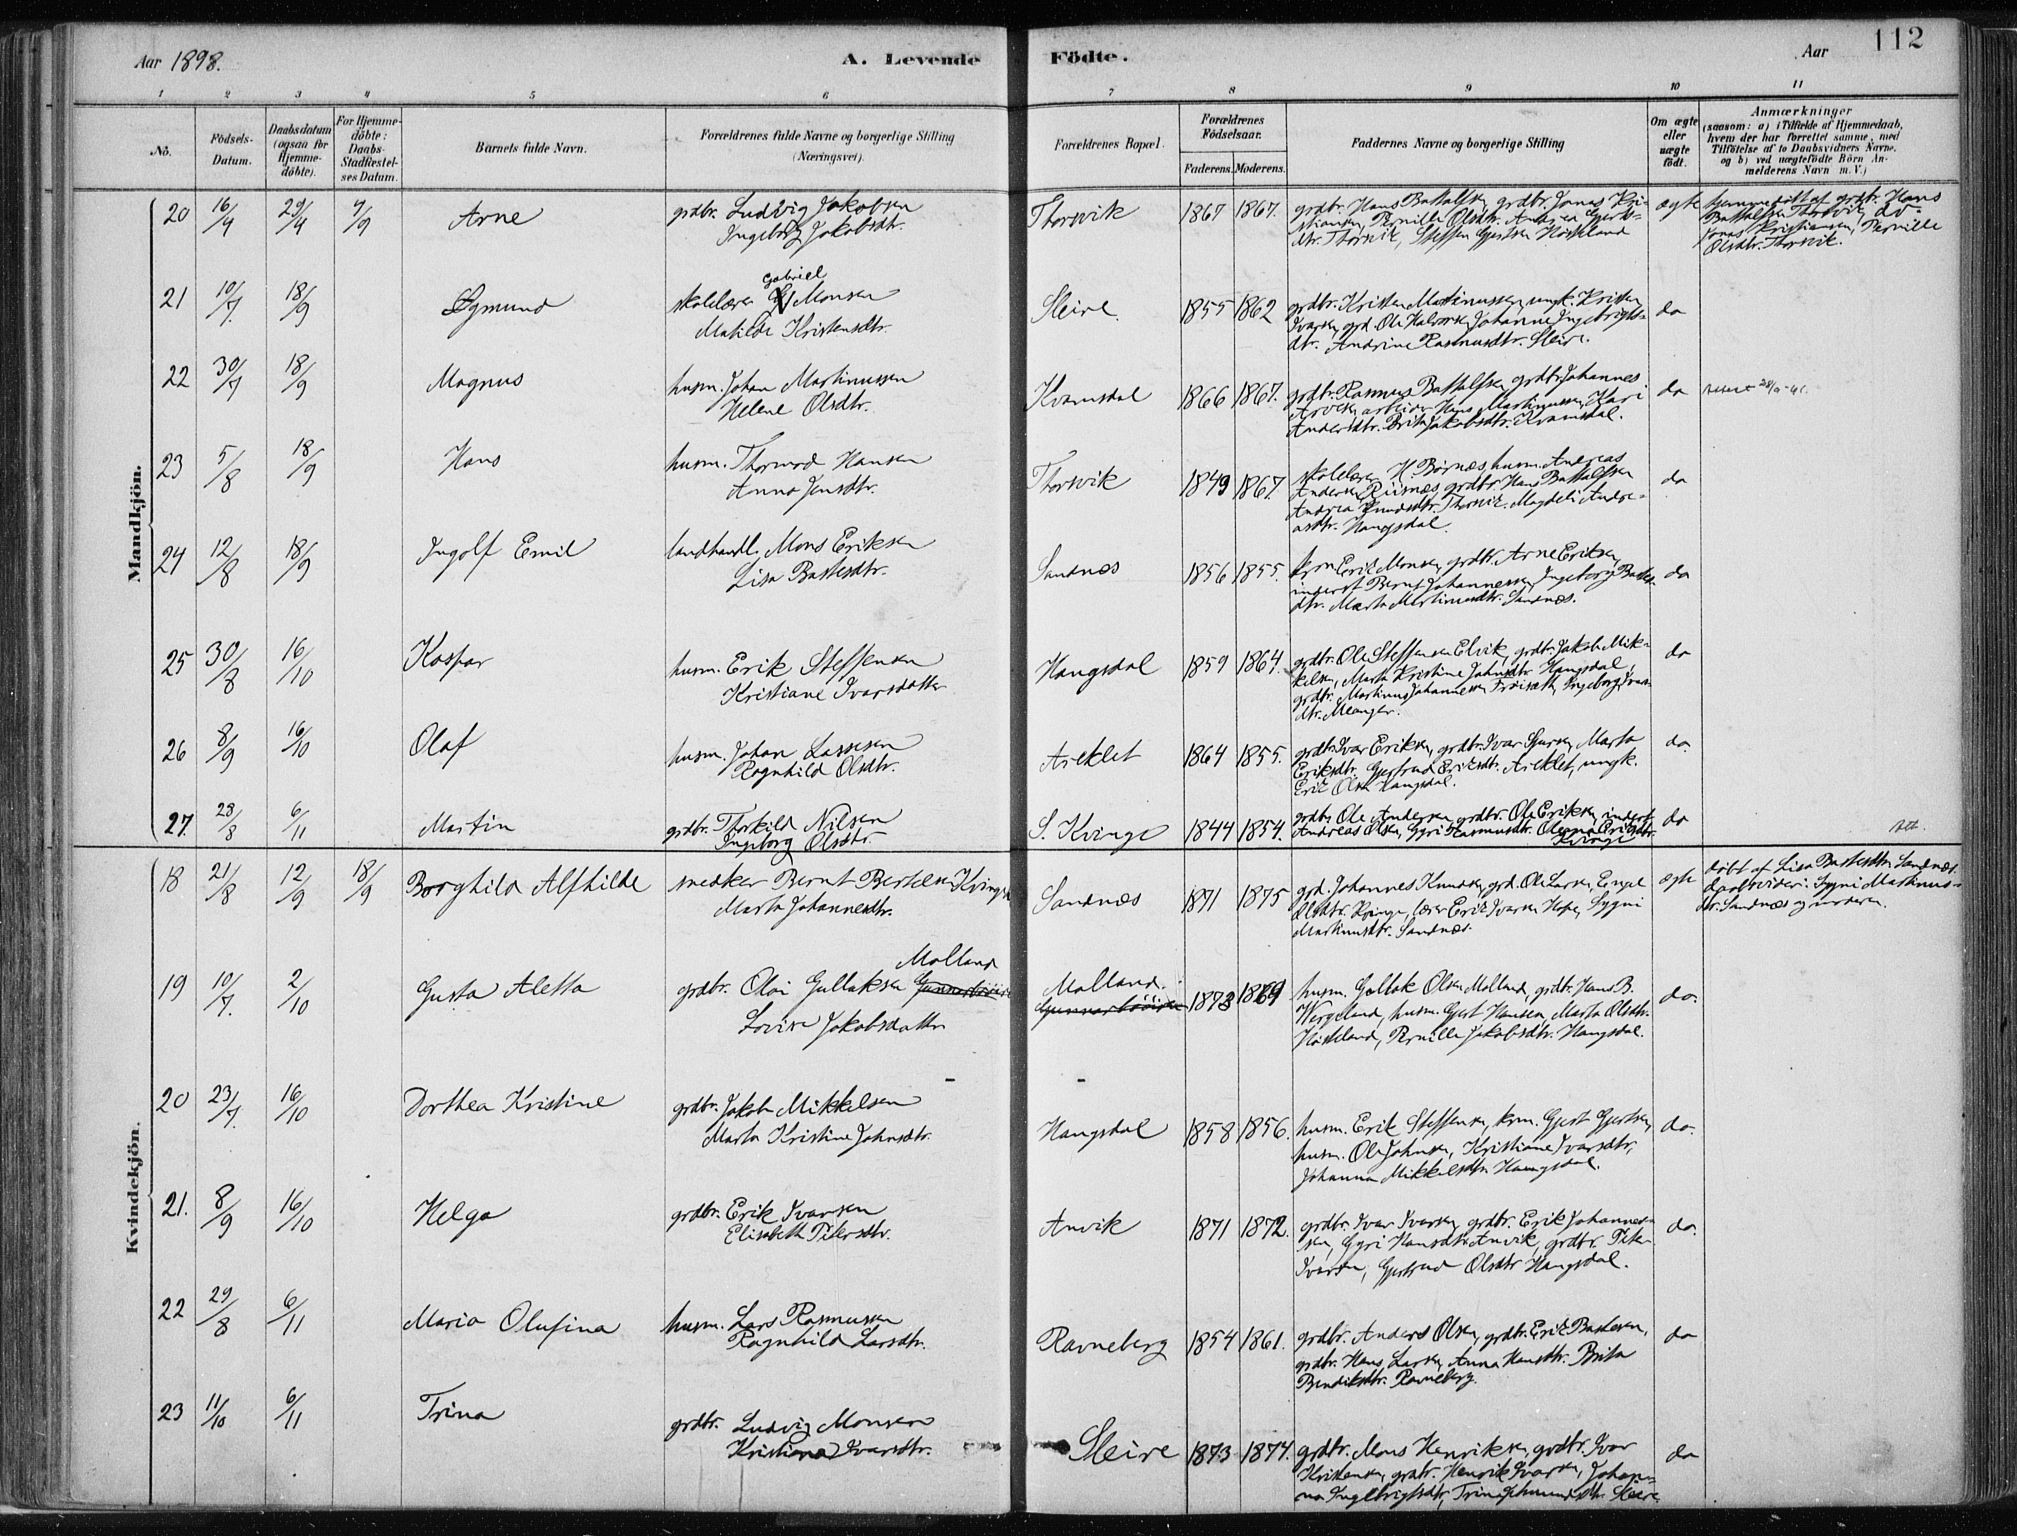 Aar 1898.
A. Levende
Födte.
Aar
112
1 2 3 4 5 6 7 8 9 10 11
No.
Födsels-
Datum.
Daabsdatum
(ogsaa for
Hjemme-
döbte).
For Hjemme-
döbte:
Daabs-
Stadfæstel-
ses Datum.
Barnets fulde Navn.
Forældrenes fulde Navne og borgerlige Stilling
(Næringsvei).
Forældrenes Bopæl.
Forældrenes
Födselsaar.
Faderens. Moderens.
Faddernes Navne og borgerlige Stilling
Om ægte
eller
uægte
födt.
Anmærkninger
(saasom: a) i Tilfælde af Hjemmedaab,
hvem der har forrettet samme, med
Tilföielse af to Daabsvidners Navne,
og b) ved uægtefödte Börn An-
melderens Navn m. V.)
Mandkjön.
20 16/4 29/4 4/9 Arne
grdbr. Ludvig Jakobsen
Ingeborg Jakobsdtr.
Thorsvik 1867 1867.
grdbr. Hans Battalfsen, grdbr. Jonas Kri-
stiansen, Pernille Olsdtr. Andrea Gjerts-
dtr. Thorsvik, Steffen Gjertsen Höstland
ægte
hjemmedöbt af grdbr. Hans
Battalfsen Thorsvik,
Jonas Kristiansen, Pernille
Olsdtr. Thorsvik.
21 10/7. 18/9 Sigmund
Gabriel
skolelærer Monsen
Matilde Kristensdtr.
Sleire. 1855 1862
grdbr. Kristen Martinussen, ungk. Kristen
Ivarsen, grd. Ole Halvorsen, Johanne Ingebrigts-
dtr. Andrine Rasmusdtr. Sleire.
do
22 30/7 18/9 Magnus
husm. Johan Martinussen
Helene Olsdtr.
Kvamsdal 1866 1867.
grdbr. Rasmus Battalfsen, grdbr. Johannes
Arvesen, arbeider Hans Martinussen, Kari
Andersdtr. Brita Jakobsdtr. Kvamsdal.
do
23 5/8 18/9 Hans
husm. Thormod Hansen
Anna Jensdtr.
Thorsvik 1849 1867
skolelærer H. Börnæs, husm. Andreas
Andersen Riisnæs, grdbr. Hans Battalfsen
Andrea Knudsdtr. Thorsvik. Magdeli Andre-
asdtr. Hangsdal.
do
24 12/8 18/9 Ingolf Emil
landhandl. Mons Eriksen
Lisa Bastesdtr.
Sandnæs 1856 1855.
krm Erik Monsen, grdbr. Arne Eriksen,
inderst Bernt Johannessen, Ingeborg Bastes-
dtr. Marta Martinusdtr. Sandnæs.
do
25 30/8 16/10 Kaspar
husm. Erik Steffensen
Kristiane Ivarsdatter
Hangsdal 1859 1864.
grdbr. Ole Steffensen Elvik, grdbr. Jakob Mik-
kelsen, Marta Kristine Johnsdtr. Hangsdal,
grdbr. Martinus Johannessen Fröiset, Ingeborg Ivars-
dtr. Manger.
do
26 8/9 16/10 Olaf
husm. Johan Lassesen
Ragnhild Olsdtr.
Areklet 1864 1855.
grdbr. Ivar Eriksen, grdbr. Ivar Sjursen, Marta
Eriksdtr. Gjertrud Eriksdtr. Areklet, ungk.
Erik Olsen Hangsdal.
do.
27. 28/8 6/11 Martin
grdbr. Thorkild Nilsen
Ingeborg Olsdtr.
S. Kvinge 1844 1854.
grdbr. Ole Andersen, grdbr. Ole Eriksen, inderst
Andreas Olsen, Gyri Rasmusdtr. Oleanna Eriksdtr.
Kvinge
do
Kvindekjön.
18 21/8 12/9 18/9 Borghild Alfhilde
snedker Bernt Bertelsen Kvinge
Marta Johannesdtr.
Sandnæs 1871 1875
grd. Johannes Knudsen, grd. Ole Larsen, Engel
Olsdtr. Kvinge, lærer Erik Ivarsen Hope, Sygni
Martinusdtr. Sandnæs.
ægte
döbt af Lisa Bastesdtr. Sandnæs.
daabsvidner: Sygni Martinus-
dtr. Sandnæs og moderen.
19 10/7. 2/10 Gusta Aletta
Molland
grdbr. Olai Gullaksen Gunnarbröire
Lovise Jakobsdatter
Molland.
Gunnarbröire 1873 1869
husm. Gullak Olsen Molland, grdbr. Hans B.
Wergeland, husm. Gjert Hansen, Marta Olsdtr.
Höstland, Pernille Jakobsdtr. Hangsdal.
do.
20 23/7. 16/10 Dorthea Kristine
grdbr. Jakob Mikkelsen
Marta Kristine Johnsdtr.
Hangsdal 1858 1856.
husm. Erik Steffensen, krm. Gjert Gjertsen,
husm. Ole Johnsen, Kristiane Ivarsdtr,
Johanna Mikkelsdtr. Hangsdal.
do.
21. 8/9 16/10 Helga
grdbr. Erik Ivarsen
Elisabeth Petersdtr.
Anvik 1871 1872.
grdbr. Ivar Ivarsen, grdbr. Erik Johannes-
sen, Gyri Hansdtr. Anvik, grdbr. Peter
Ivarsen, Gjertrud Olsdtr Hangsdal.
do.
22 29/8 6/11 Maria Olufina
husm. Lars Rasmussen
Ragnhild Larsdtr.
Ravneberg 1854 1861.
grdbr. Anders Olsen, grdbr. Erik Bastesen,
grdbr. Hans Larsen, Anna Hansdtr. Brita
Bendiksdtr. Ravneberg.
do
23 11/10 6/11 Trina
grdbr. Ludvig Monsen
Kristiane Ivarsdtr.
Sleire 1873 1874.
grdbr. Mons Henriksen, grdbr. Ivar
Kristensen, grdbr. Henrik Ivarsen, Johan-
na Ingebrigtsdtr, Trina Sleire
do